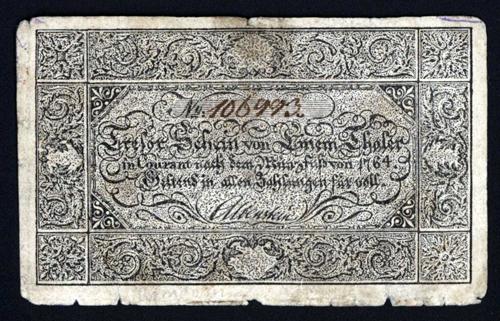 No. 106993.
Tresor Schein von Einem Thaler
in Courant nach dem Münzfuß von 1764
Geltend in allen Zahlungen für voll.